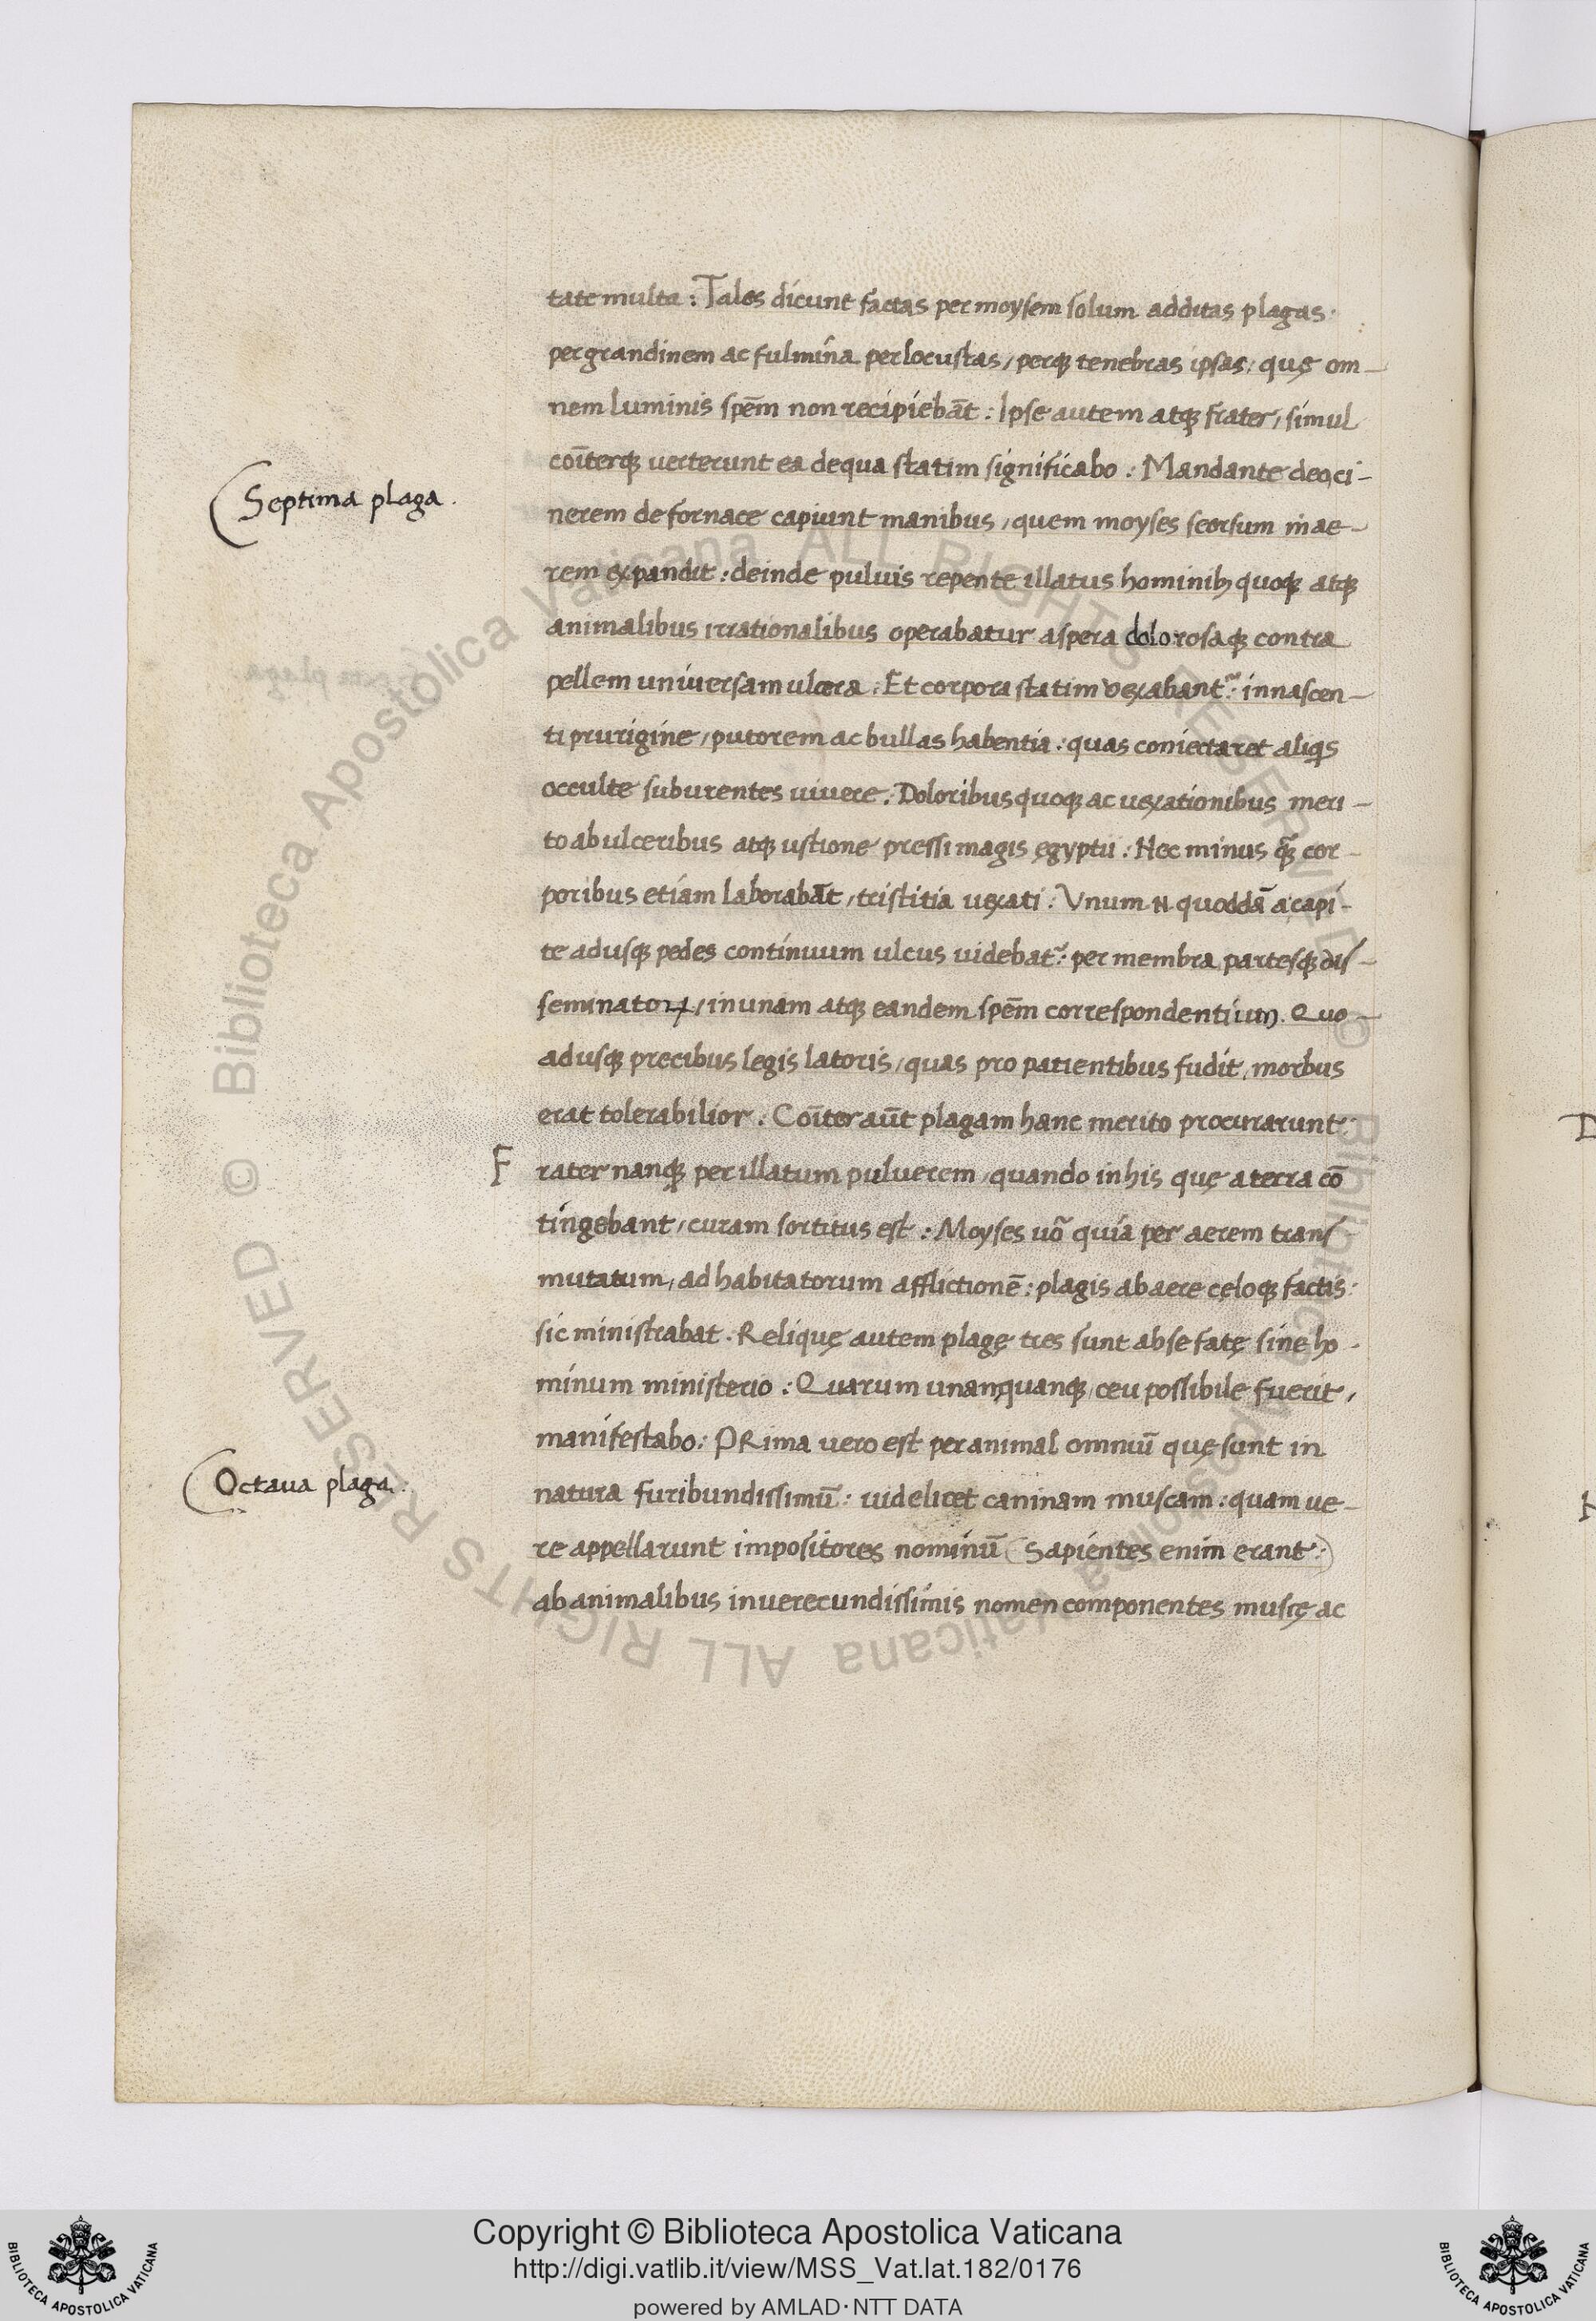 tate multa : Tales dicunt factas per moysem solum additas plagas :
per grandinem ac fulmina per locustas / perq tenebras ipsas : quę om-
nem luminis spēm non recipiebāt : Ipse autem atq frater / simul
coīterq verterunt ea de qua statim significabo : Mandante deo, ci-
Septima plaga .
nerem de fornace capiunt manibus / quem moyses seorsum in ae-
rem expandit : deinde puluis repente illatus hominibꝫ quoq atq
animalibus irrationalibus operabatur aspera dolorosaq contra
pellem universam ulcera : Et corpora statim vexabant᷑ : innascen-
ti prurigine / putorem ac bullas habentia : quas coniectaret aliqs
occulte suburentes vivere : Doloribus quoq ac vexationibus meri-
to ab ulceribus atq ustione pressi magis ęgyptii : Nec minus q̃ cor-
poribus etiam laborabāt / tristitia vexati : Vnum N quoddā a capi-
te adusq pedes continuum ulcus videbat᷑ : per membra partesq dis-
seminatoꝝ / in unam atq eandem spēm correspondentium . Quo-
adusq precibus legis latoris / quas pro patientibus fudit / morbus
erat tolerabilior . Coīter aūt plagam hanc merito procurarunt
Frater nanq per illatum pulverem / quando in his quę a terra cō
tingebant / curam sortitus est : Moyses vō quia per aerem trans
mutatum / ad habitatorum afflictionē : plagis ab aere cęloq factis :
sic ministrabat . Reliquę autem plagę tres sunt ab se fatę sine ho-
minum ministerio : Quarum unanquanq / ceu possibile fuerit /
manifestabo : PRima vero est per animal omniū quę sunt in
Octava plaga .
natura furibundissimū : videlicet caninam muscam : quam ve-
re appellarunt impositores nominū ( Sapientes enim erant : )
ab animalibus inverecundissimis nomen componentes muscę ac
D
Copyright © Biblioteca Apostolica Vaticana
http://digi.vatlib.it/view/MSS_Vat.lat.182/0176
powered by AMLAD·NTT DATA
BIBLIOTECA APOSTOLICA VATICANA
BIBLIOTECA APOSTOLICA VATICANA
© Biblioteca Apostolica Vaticana ALL RIGHTS RESERVED
© Biblioteca Apostolica Vaticana ALL RIGHTS RESERVED